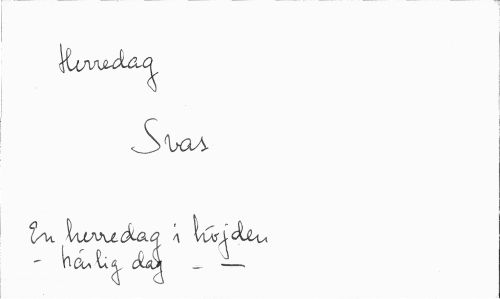 Herredag
Svas
En herredag i höjden
- härlig dag - —